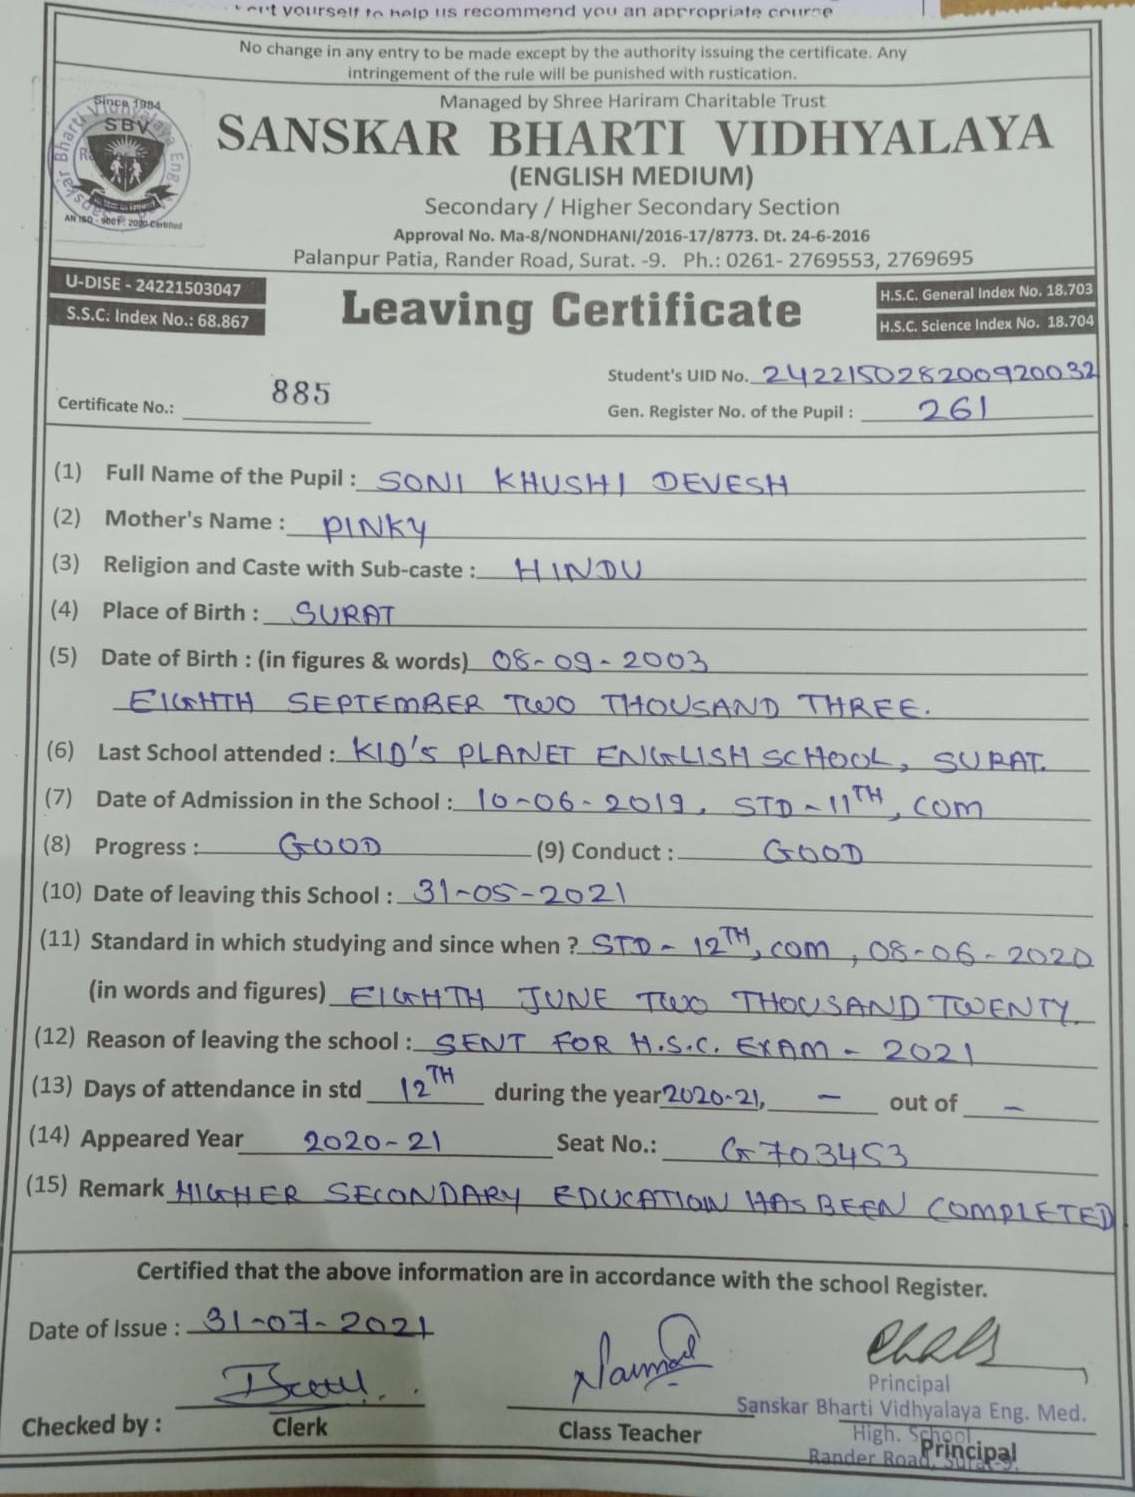 yourself to help us recommend you an appropriate course
No change in any entry to be made except by the authority issuing the certificate. Any
intringement of the rule will be punished with rustication.
Managed by Shree Hariram Charitable Trust
Since 1984
SBV
AN ISO - 9001 : 2000 Certified
SANSKAR BHARTI VIDHYALAYA
(ENGLISH MEDIUM)
Secondary / Higher Secondary Section
Approval No. Ma-8/NONDHANI/2016-17/8773. Dt. 24-6-2016
Palanpur Patia, Rander Road, Surat. -9. Ph.: 0261- 2769553, 2769695
U-DISE - 24221503047
S.S.C. Index No.: 68.867
Leaving Certificate
H.S.C. General Index No. 18.703
H.S.C. Science Index No. 18.704
Student's UID No. 242215028200920032
Certificate No.: 885
Gen. Register No. of the Pupil : 261
(1) Full Name of the Pupil : SONI KHUSHI DEVESH
(2) Mother's Name : PINKY
(3) Religion and Caste with Sub-caste : HINDU
(4) Place of Birth : SURAT
(5) Date of Birth : (in figures & words) 08-09-2003
EIGHTH SEPTEMBER TWO THOUSAND THREE.
(6) Last School attended : KID'S PLANET ENGLISH SCHOOL, SURAT.
(7) Date of Admission in the School : 10-06-2019, STD-11TH, COM
(8) Progress : GOOD (9) Conduct : GOOD
(10) Date of leaving this School : 31-05-2021
(11) Standard in which studying and since when ? STD-12TH, COM, 08-06-2020
(in words and figures) EIGHTH JUNE TWO THOUSAND TWENTY.
(12) Reason of leaving the school : SENT FOR H.S.C. EXAM - 2021
(13) Days of attendance in std 12TH during the year 2020-21, - out of -
(14) Appeared Year 2020-21 Seat No.: G703453
(15) Remark HIGHER SECONDARY EDUCATION HAS BEEN COMPLETED
Certified that the above information are in accordance with the school Register.
Date of Issue : 31-07-2021
Principal
Sanskar Bharti Vidhyalaya Eng. Med.
High. School
Rander Road, Surat-9.
Checked by : Clerk
Class Teacher
Principal